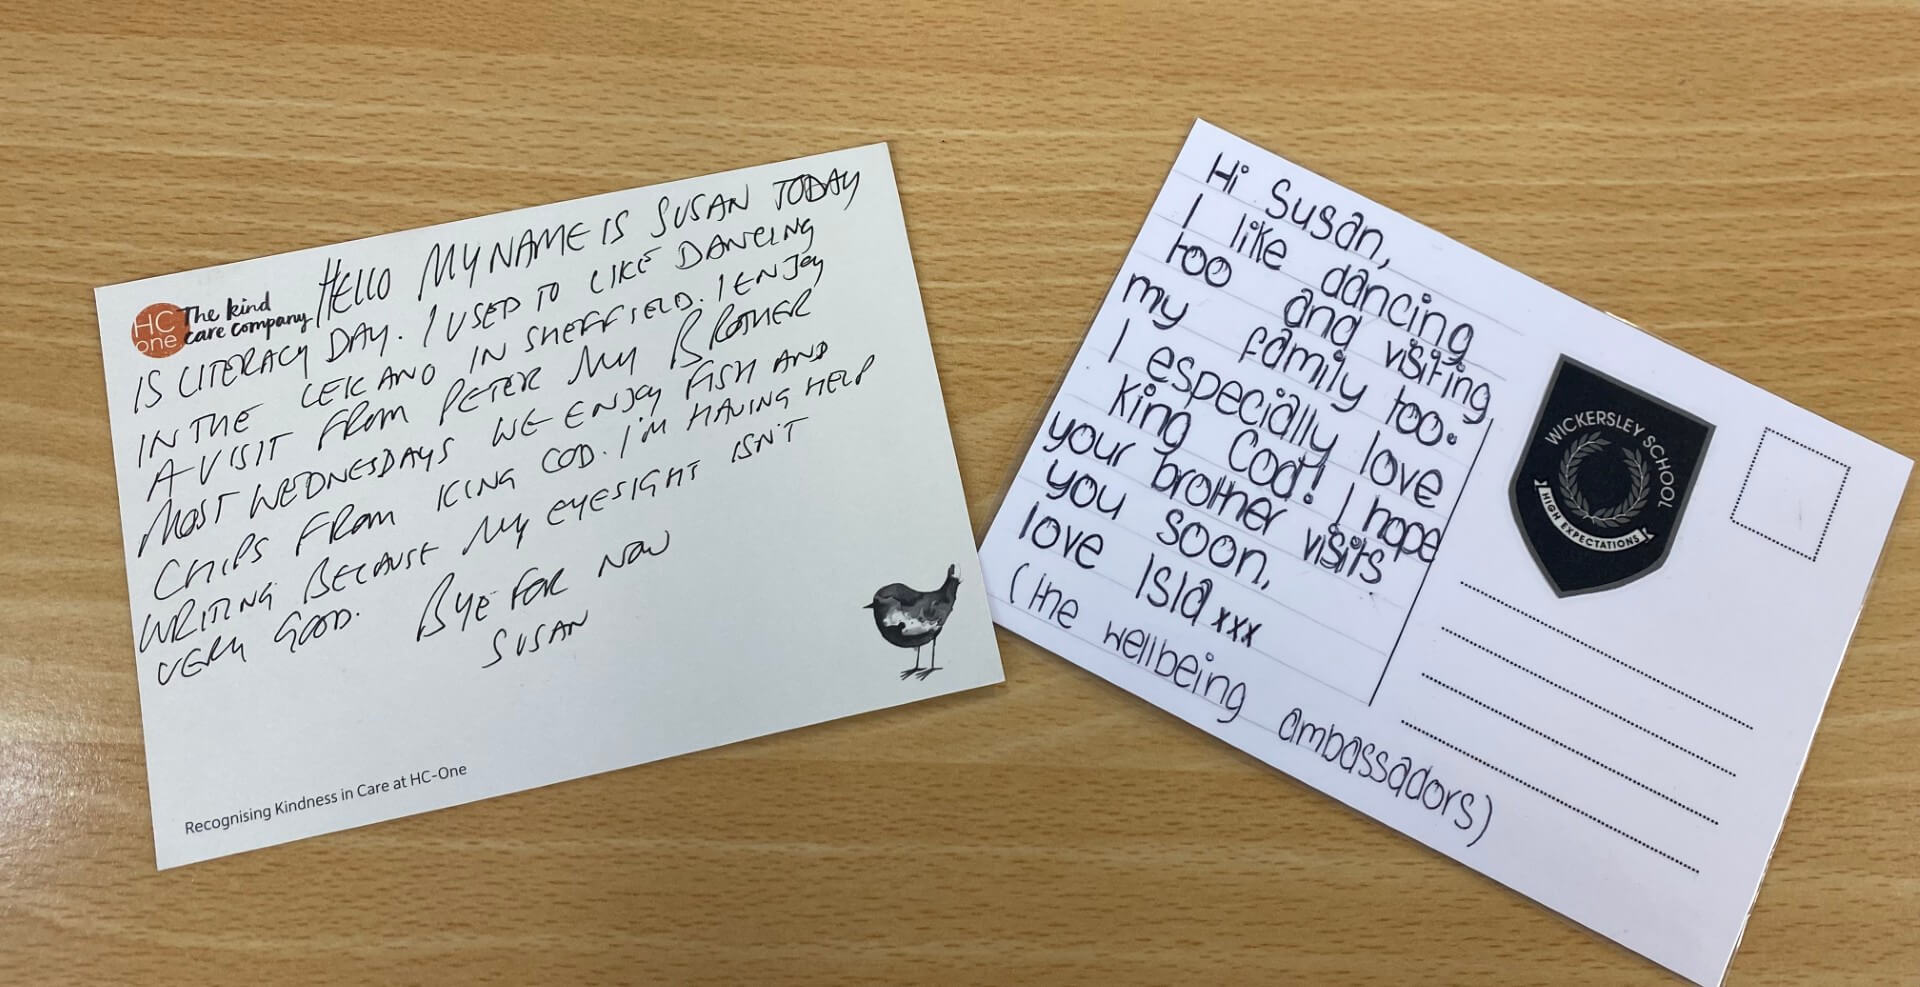 HC
one
The kind
care company
HELLO MY NAME IS SUSAN TODAY
IS LITERACY DAY. I USED TO LIKE DANCING
IN THE LEICANO IN SHEFFIELD. I ENJOY
A VISIT FROM PETER MY BROTHER
MOST WEDNESDAYS WE ENJOY FISH AND
CHIPS FROM KING COD. I'M HAVING HELP
WRITING BECAUSE MY EYESIGHT ISN'T
VERY GOOD. BYE FOR NOW
SUSAN
Recognising Kindness in Care at HC-One
Hi Susan,
I like dancing
too and visiting
my family too.
I especially love
King Cod! I hope
your brother visits
you soon,
love Isla xxx
(the wellbeing ambassadors)
WICKERSLEY SCHOOL
HIGH EXPECTATIONS